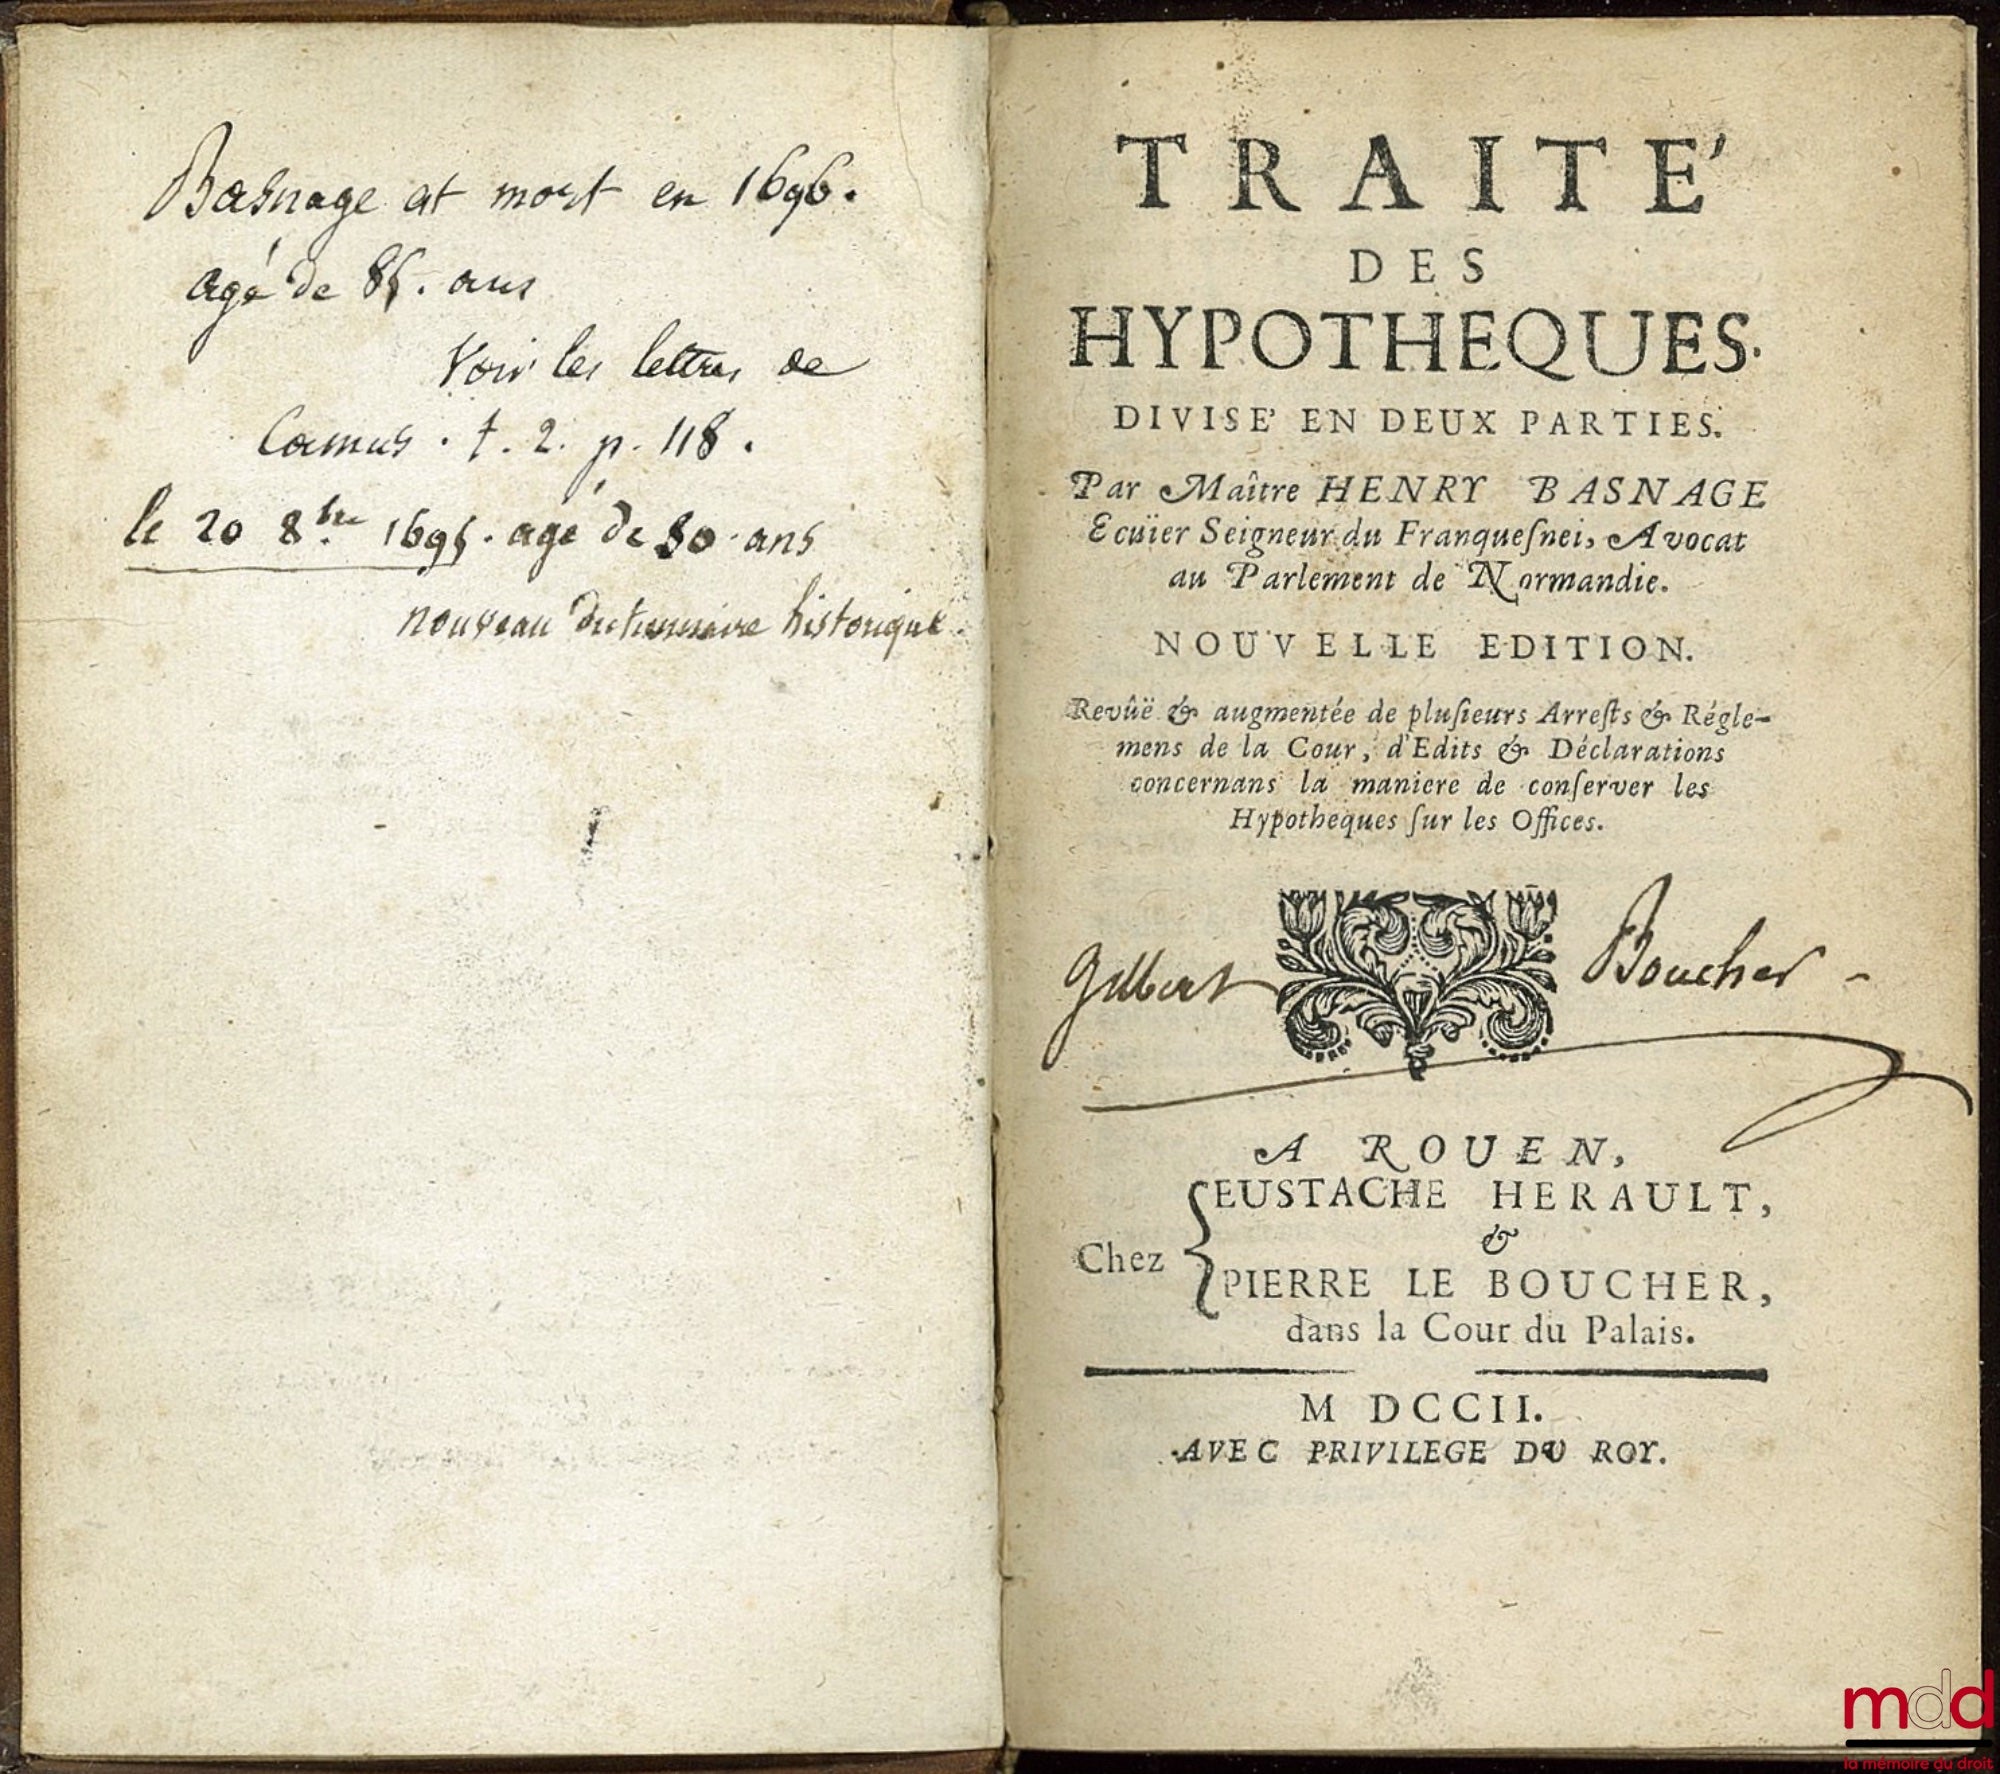 Basnage est mort en 1696.
agé de 85. ans
Voir les lettres de
Camus. t. 2. p. 118.
le 20 8.bre 1695. agé de 80 ans
nouveau dictionnaire historique.
TRAITE'
DES
HYPOTHEQUES.
DIVISE' EN DEUX PARTIES.
Par Maître HENRY BASNAGE
Ecüier Seigneur du Franqueſnei, Avocat
au Parlement de Normandie.
NOUVELLE EDITION.
Revûë & augmentée de pluſieurs Arreſts & Régle-
mens de la Cour, d'Edits & Déclarations
concernans la maniere de conſerver les
Hypotheques ſur les Offices.
Gilbert Boucher
A ROUEN,
EUSTACHE HERAULT,
&
Chez
PIERRE LE BOUCHER,
dans la Cour du Palais.
M DCCII.
AVEC PRIVILEGE DU ROY.
mdd
la mémoire du droit